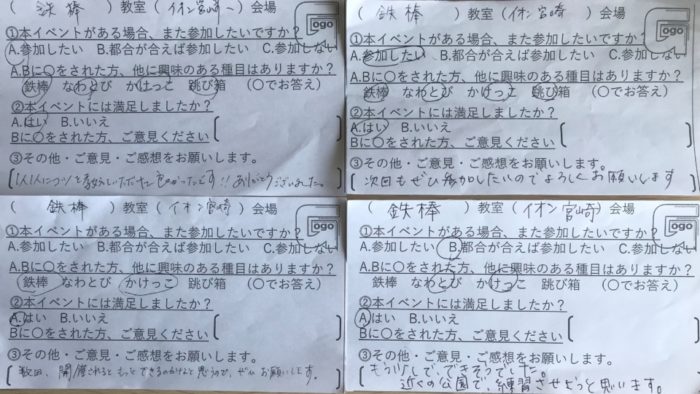 ( 鉄棒 )教室(イオン宮崎 )会場
Logo
①本イベントがある場合、また参加したいですか?
A.参加したい B.都合が合えば参加したい C.参加しない
A.Bに〇をされた方、他に興味のある種目はありますか?
鉄棒 なわとび かけっこ 跳び箱 (〇でお答え)
②本イベントには満足しましたか?
A.はい B.いいえ
Bに〇をされた方、ご意見ください
③その他・ご意見・ご感想をお願いします。
ありがとうございました。
( 鉄棒 )教室(イオン宮崎 )会場
Logo
①本イベントがある場合、また参加したいですか?
A.参加したい B.都合が合えば参加したい C.参加しない
A.Bに〇をされた方、他に興味のある種目はありますか?
鉄棒 なわとび かけっこ 跳び箱 (〇でお答え)
②本イベントには満足しましたか?
A.はい B.いいえ
Bに〇をされた方、ご意見ください
③その他・ご意見・ご感想をお願いします。
次回もぜひ参加したいのでよろしくお願いします
( 鉄棒 )教室(イオン宮崎 )会場
Logo
①本イベントがある場合、また参加したいですか?
A.参加したい B.都合が合えば参加したい C.参加しない
A.Bに〇をされた方、他に興味のある種目はありますか?
鉄棒 なわとび かけっこ 跳び箱 (〇でお答え)
②本イベントには満足しましたか?
A.はい B.いいえ
Bに〇をされた方、ご意見ください
③その他・ご意見・ご感想をお願いします。
数回、開催されるともっとできるのかなと思うので、ぜひお願いします。
( 鉄棒 )教室(イオン宮崎)会場
Logo
①本イベントがある場合、また参加したいですか?
A.参加したい B.都合が合えば参加したい C.参加しない
A.Bに〇をされた方、他に興味のある種目はありますか?
鉄棒 なわとび かけっこ 跳び箱 (〇でお答え)
②本イベントには満足しましたか?
A.はい B.いいえ
Bに〇をされた方、ご意見ください
③その他・ご意見・ご感想をお願いします。
もう少しで、できそうでした。
近くの公園で、練習させようと思います。